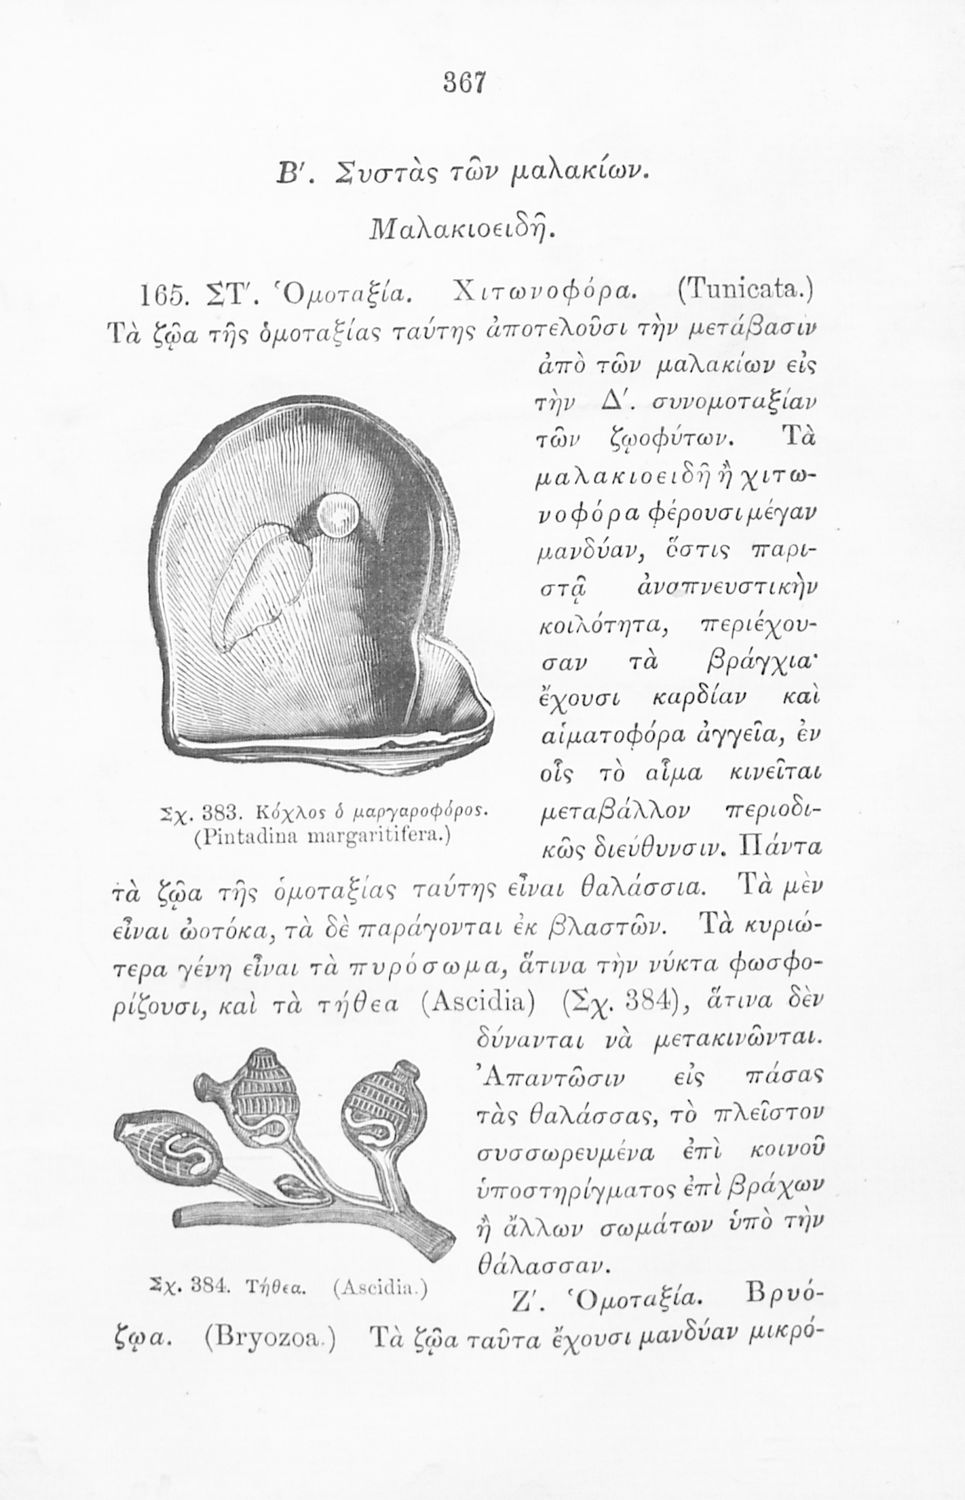 367
Β′. Συστὰς τῶν μαλακίων.
Μαλακιοειδῆ.
165. ΣΤ′. Ὁμοταξία. Χιτωνοφόρα. (Tunicata.)
Τὰ ζῷα τῆς ὁμοταξίας ταύτης ἀποτελοῦσι τὴν μετάβασιν
ἀπὸ τῶν μαλακίων εἰς
τὴν Δ′. συνομοταξίαν
τῶν ζῳοφύτων. Τὰ
μαλακιοειδῆ ἢ χιτω-
νοφόρα φέρουσι μέγαν
μανδύαν, ὅστις παρι-
στᾷ ἀναπνευστικὴν
κοιλότητα, περιέχου-
σαν τὰ βράγχια·
ἔχουσι καρδίαν καὶ
αἱματοφόρα ἀγγεῖα, ἐν
οἷς τὸ αἷμα κινεῖται
μεταβάλλον περιοδι-
κῶς διεύθυνσιν. Πάντα
Σχ. 383. Κόχλος ὁ μαργαροφόρος.
(Pintadina margaritifera.)
τὰ ζῷα τῆς ὁμοταξίας ταύτης εἶναι θαλάσσια. Τὰ μὲν
εἶναι ὠοτόκα, τὰ δὲ παράγονται ἐκ βλαστῶν. Τὰ κυριώ-
τερα γένη εἶναι τὰ πυρόσωμα, ἅτινα τὴν νύκτα φωσφο-
ρίζουσι, καὶ τὰ τήθεα (Ascidia) (Σχ. 384), ἅτινα δὲν
δύνανται νὰ μετακινῶνται.
Ἀπαντῶσιν εἰς πάσας
τὰς θαλάσσας, τὸ πλεῖστον
συσσωρευμένα ἐπὶ κοινοῦ
ὑποστηρίγματος ἐπὶ βράχων
ἢ ἄλλων σωμάτων ὑπὸ τὴν
θάλασσαν.
Σχ. 384. Τήθεα. (Ascidia.)
Ζ′. Ὁμοταξία. Βρυό-
ζῳα. (Bryozoa.) Τὰ ζῷα ταῦτα ἔχουσι μανδύαν μικρό-